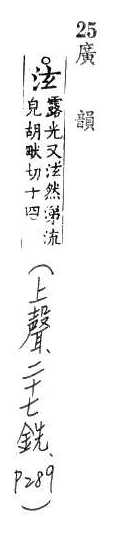 25廣韻
泫露光又泫然涕流
皃胡畎切十四
(上聲、二十七銑、P289)